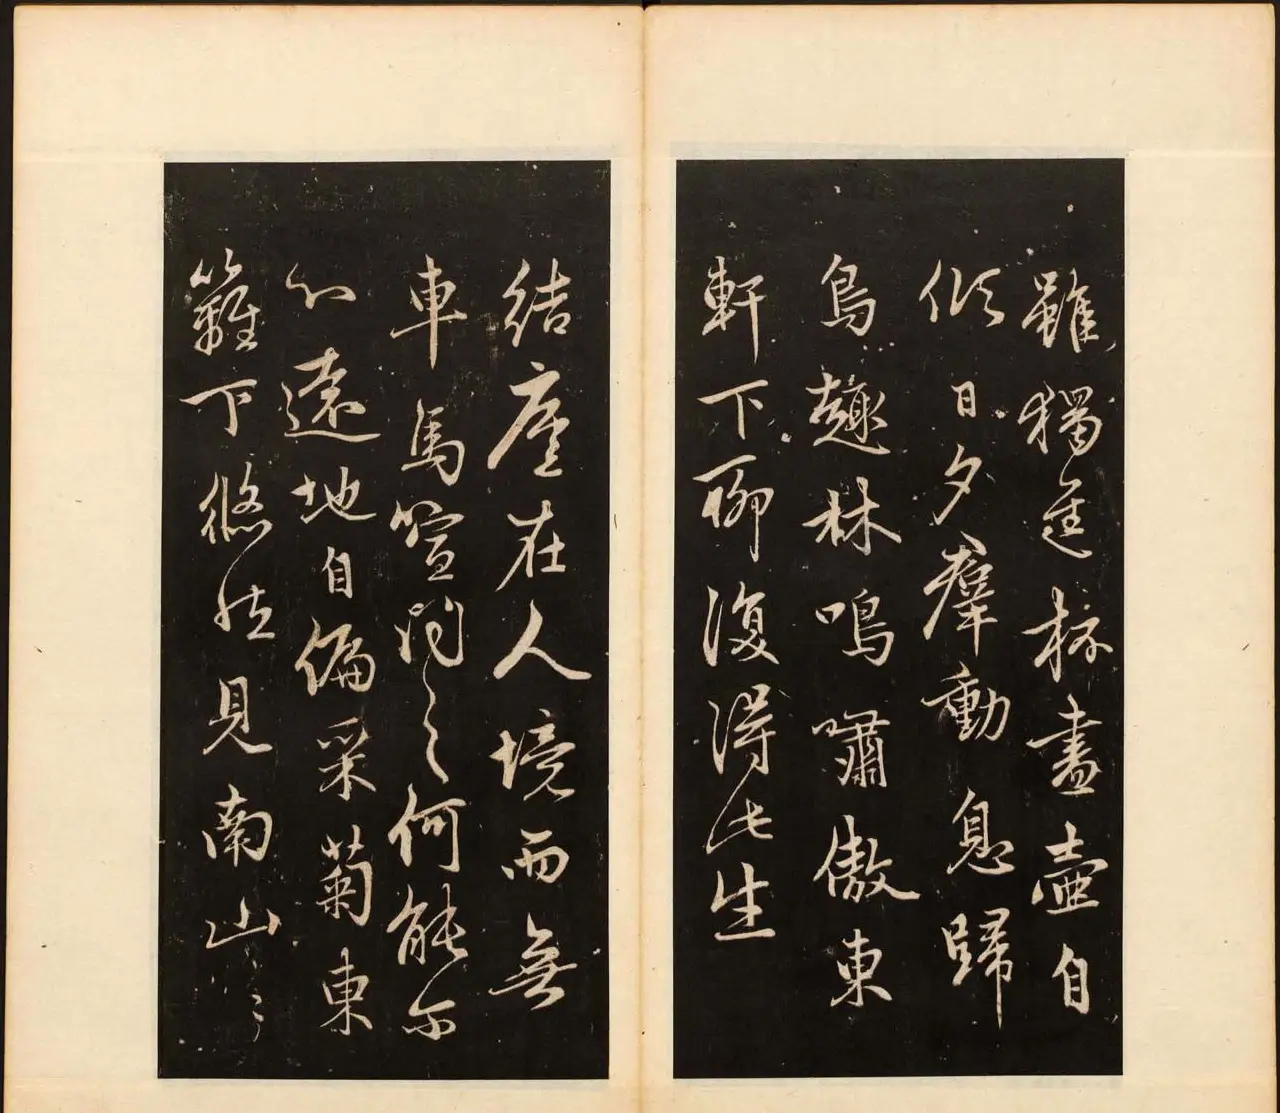 雖獨進杯盡壺自
傾日夕群動息歸
鳥趨林鳴嘯傲東
軒下聊復得此生
結廬在人境而無
車馬喧問之何能尒
心遠地自偏采菊東
籬下悠然見南山〻